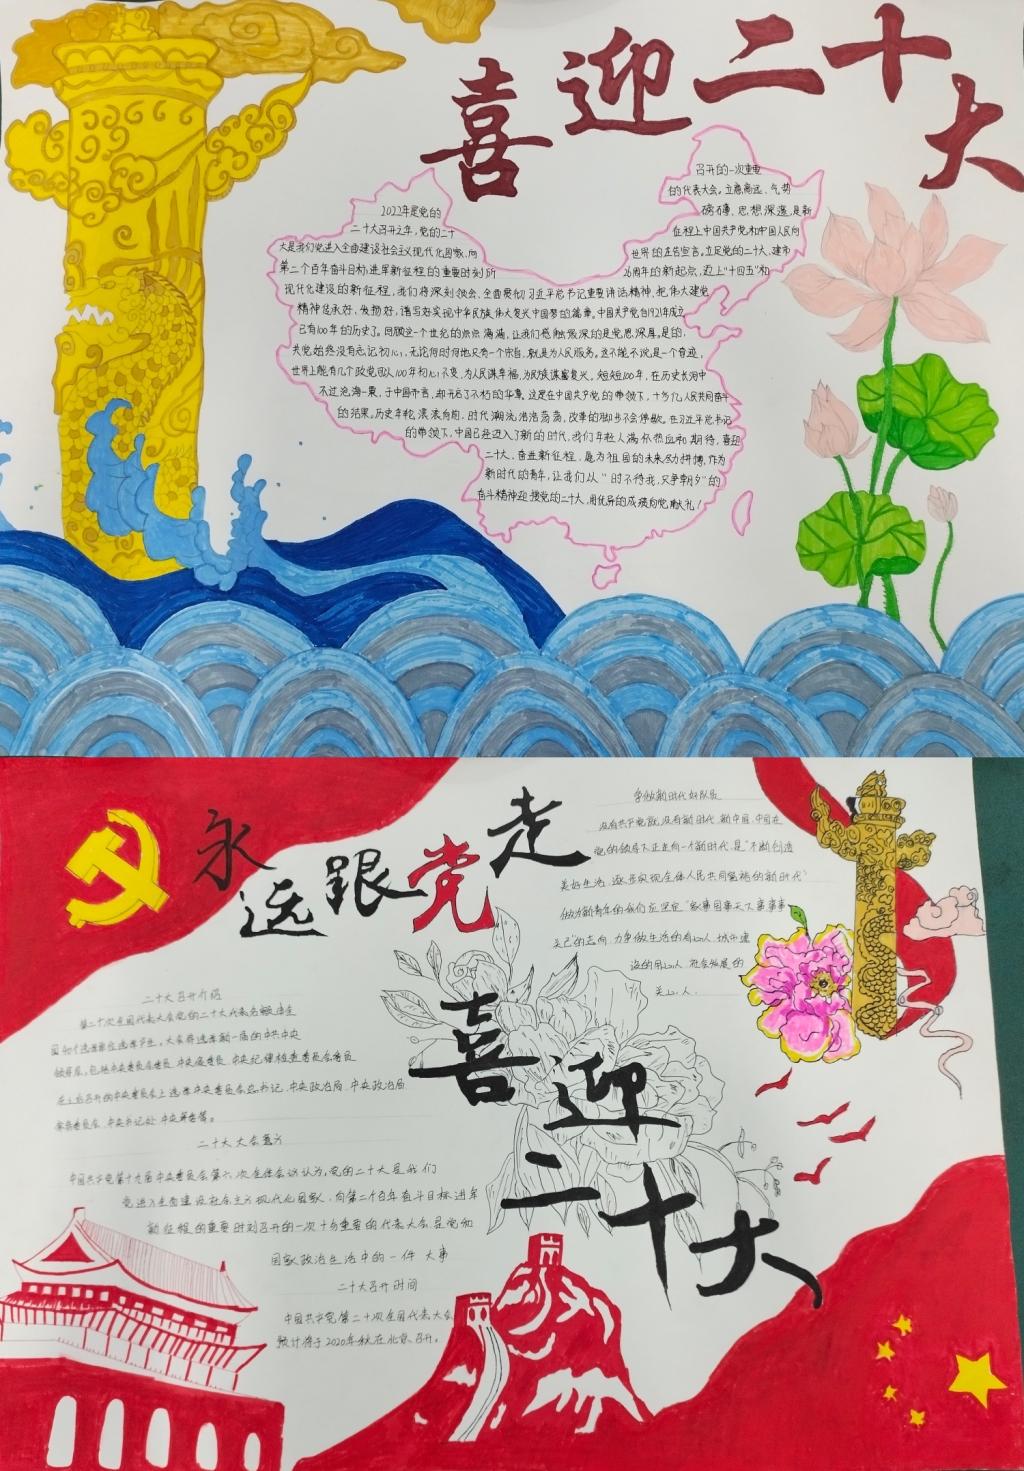 喜迎二十大
召开的一次重要
的代表大会。立意高远、气势
磅礴、思想深邃,是新
2022年是党的
征程上中国共产党和中国人民向
二十大召开之年,党的二十
世界的庄严宣言。立足党的二十大、建市
大是我们党进入全面建设社会主义现代化国家、向
26周年的新起点,迈上"十四五"和
第二个百年奋斗目标进军新征程的重要时刻所
现代化建设的新征程,我们将深刻领会、全面贯彻习近平总书记重要讲话精神,把伟大建党
精神继承好、发扬好,谱写好实现中华民族伟大复兴中国梦的篇章。中国共产党自1921年成立
已有100年的历史了。回顾这一个世纪的点点滴滴,让我们感触最深的是党恩深厚。是的,
共党始终没有忘记初心,无论何时何地只有一个宗旨,就是为人民服务。这不能不说是一个奇迹,
世界上能有几个政党可以100年初心不变,为人民谋幸福,为民族谋富复兴。短短100年,在历史长河中
不过沧海一粟,于中国而言,却开启了不朽的华章。这是在中国共产党的带领下,十多亿人民共同奋斗
的结果。历史车轮滚滚向前,时代潮流浩浩荡荡,改革的脚步不会停歇。在习近平总书记
的带领下,中国已经迈入了新的时代,我们年轻人满怀热血和期待,喜迎
二十大、奋进新征程,愿为祖国的未来尽力拼博,作为
新时代的青年,让我们以"时不待我,只争朝夕"的
奋斗精神迎接党的二十大,用优异的成绩向党献礼!
永远跟党走
争做新时代好队员
没有共产党就没有新时代,新中国,中国在
党的领导下正走向一个新时代,是"不断创造
美好生活、逐步实现全体人民共同富裕的新时代"
做为新青年的我们应坚定"家事国事天下事事事
关己"的志向,力争做生活的有心人,城市建
设的用心人,社会发展的
关心人.
喜迎二十大
二十大召开介绍
第二十次全国代表大会党的二十大代表名额
国40个选举单位选举产生,大会将选举新一届的中共中央
领导层,包括中央委员会委员、中央候委员、中央纪律检查委员会委员
在之后召开的中央委员会上选举中央委员会总书记、中央政治局、中央政治局
常务委员会、中央书记处、中央军委等。
二十大大会意义
中国共产党第十九届中央委员会第六次全体会议认为,党的二十大是我们
党进入全面建设社会主义现代化国家、向第二个百年奋斗目标进军
新征程的重要时刻召开的一次十分重要的代表大会是党和
国家政治生活中的一件大事
二十大召开时间
中国共产党第二十次全国代表大会
预计将于2020年秋在北京召开。